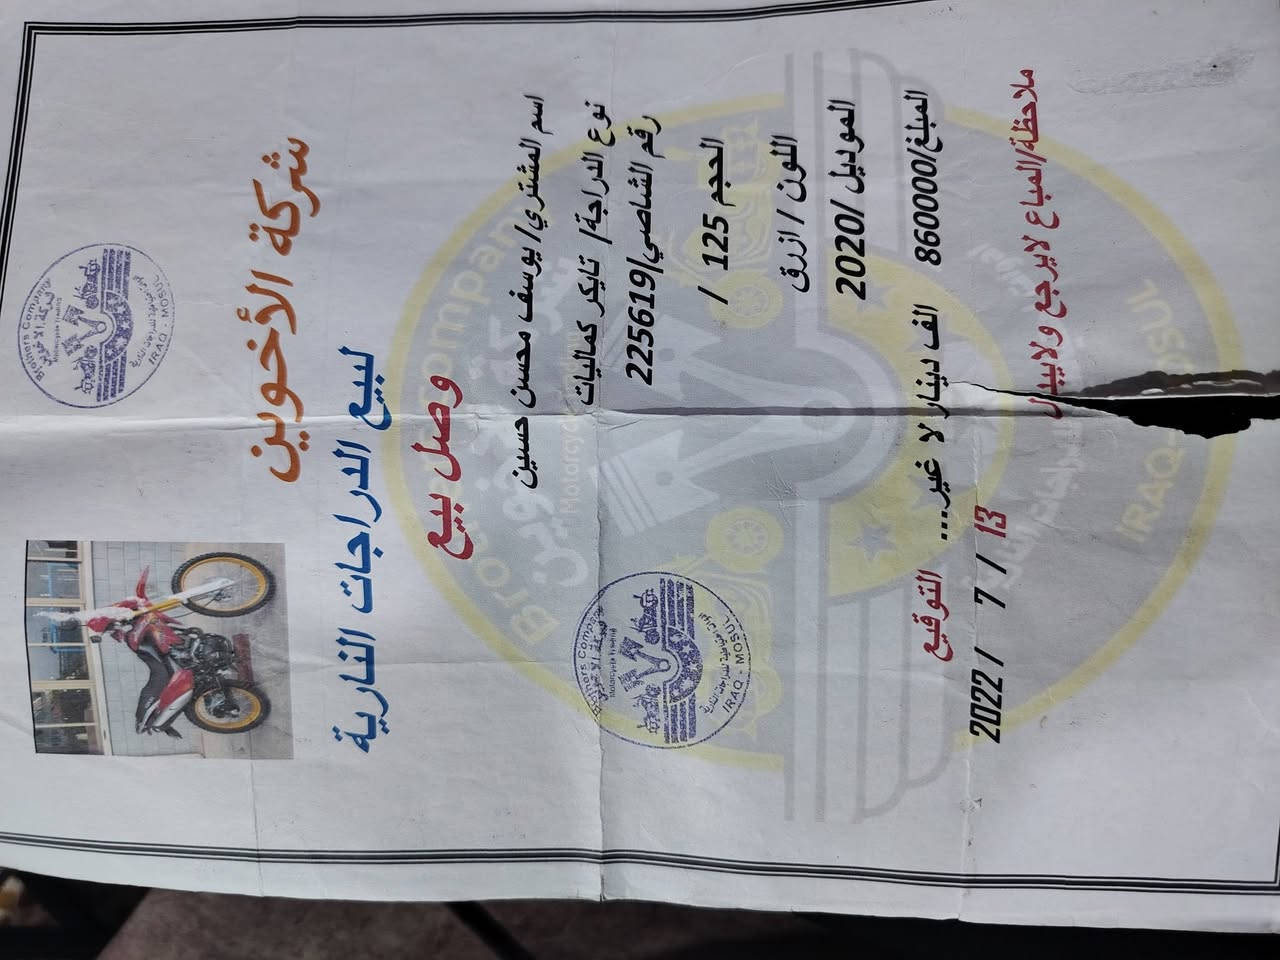 شركة الأخوين
لبيع الدراجات النارية
وصل بيع
اسم المشتري/ يوسف محسن حسين
نوع الدراجة/ تايكر كماليات
رقم الشاصي/225619
الحجم 125 /
اللون / ازرق
الموديل /2020
المبلغ/860000 الف دينار لا غير...
التوقيع
2022 / 7 / 13
ملاحظة/المباع لايرجع ولايبدل
Brothers Company
شركة الاخوين
Motorcycle Trading
IRAQ - MOSUL
Brothers Company
شركة الاخوين
Motorcycle Trading
IRAQ - MOSUL